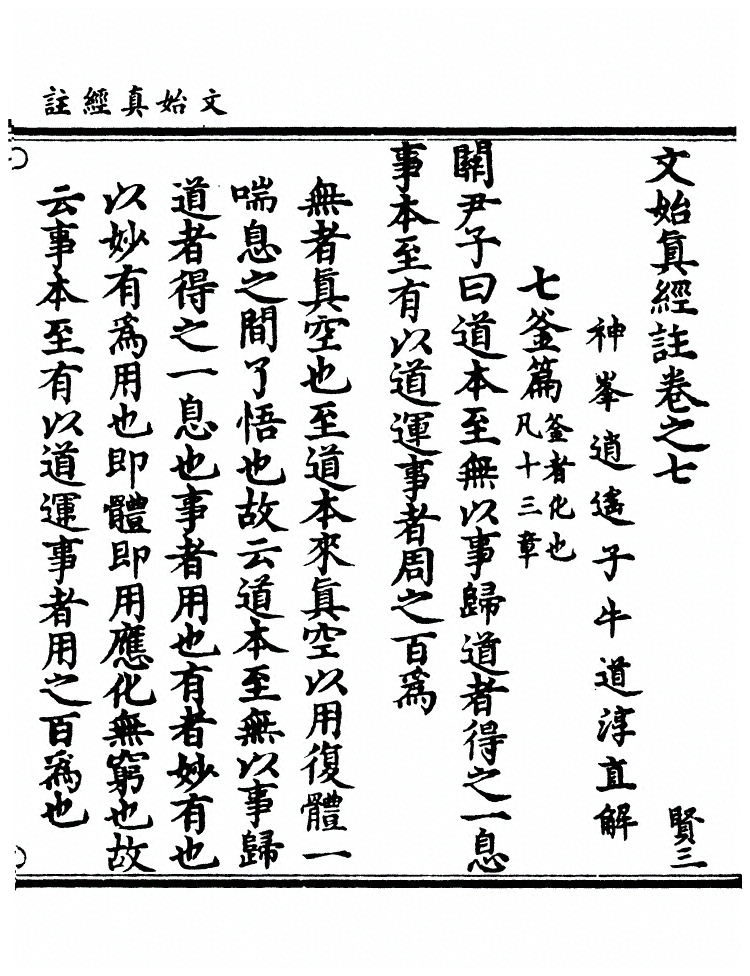 文始真經註
文始眞經註卷之七
賢三
神峯逍遙子牛道淳直解
七釜篇
釜者化也
凡十三章
關尹子曰道本至無以事歸道者得之一息
事本至有以道運事者周之百爲
無者眞空也至道本來眞空以用復體一
喘息之間了悟也故云道本至無以事歸
道者得之一息也事者用也有者妙有也
以妙有爲用也即體即用應化無窮也故
云事本至有以道運事者用之百爲也